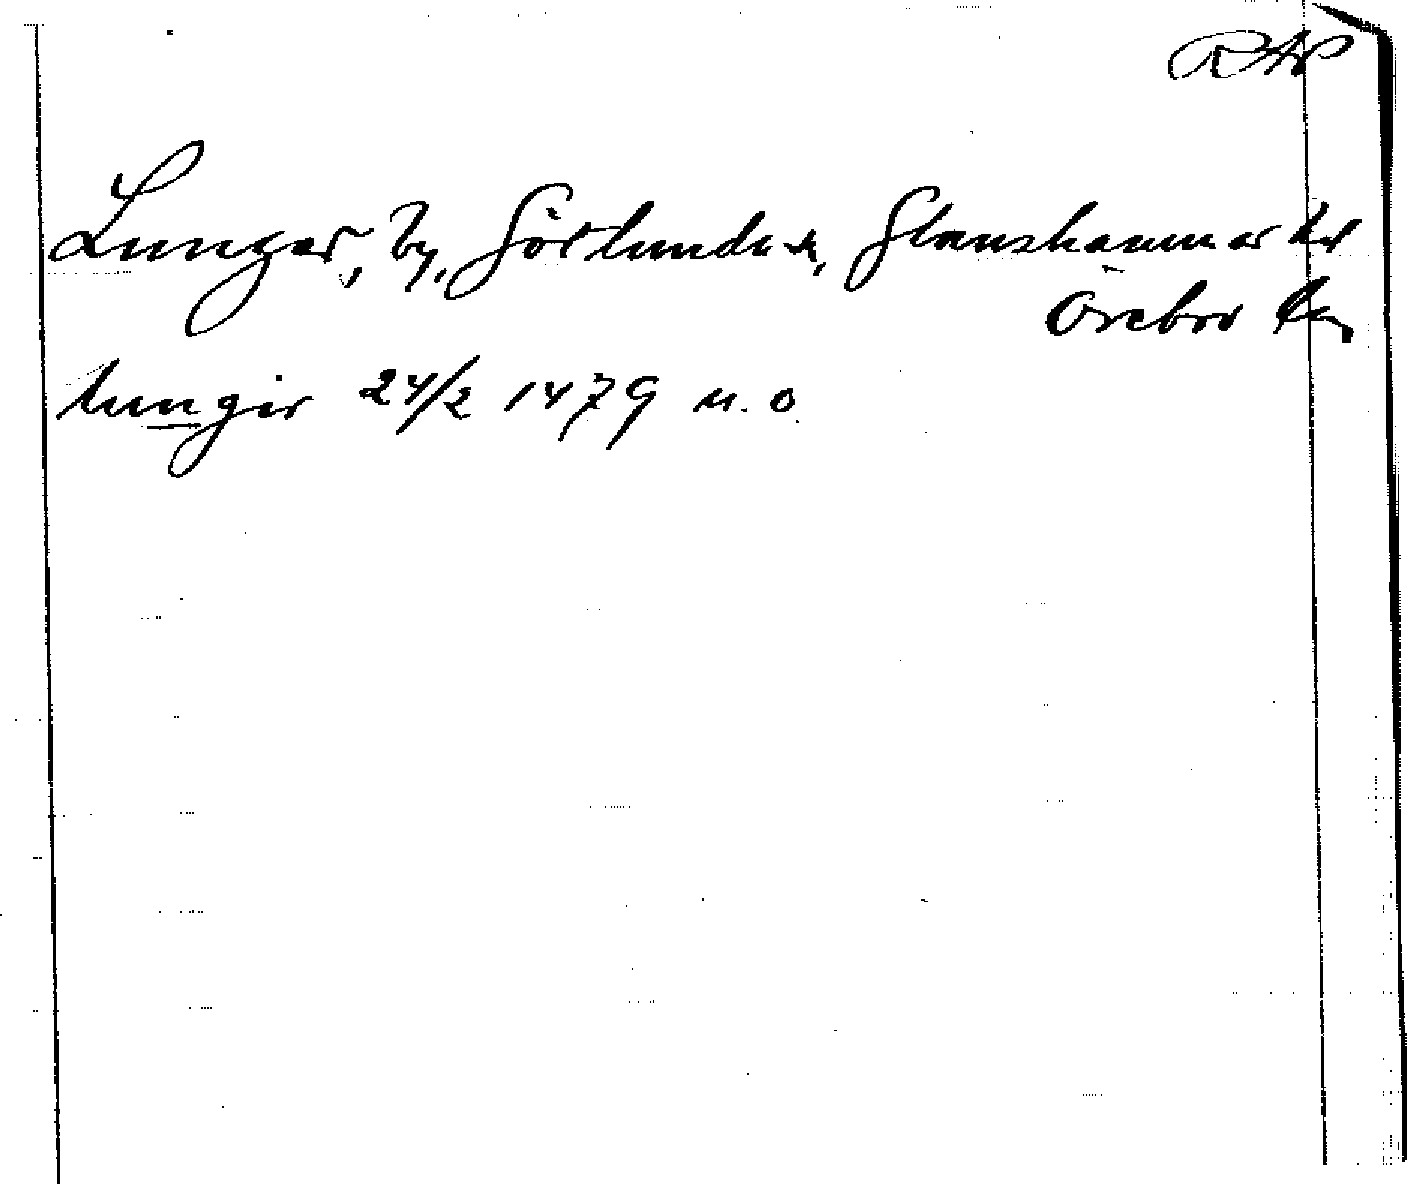 RAP
Lunger, by, Götlunda sn, Glanshammar hd
Örebro län
lungir 24/2 1479 u. o.